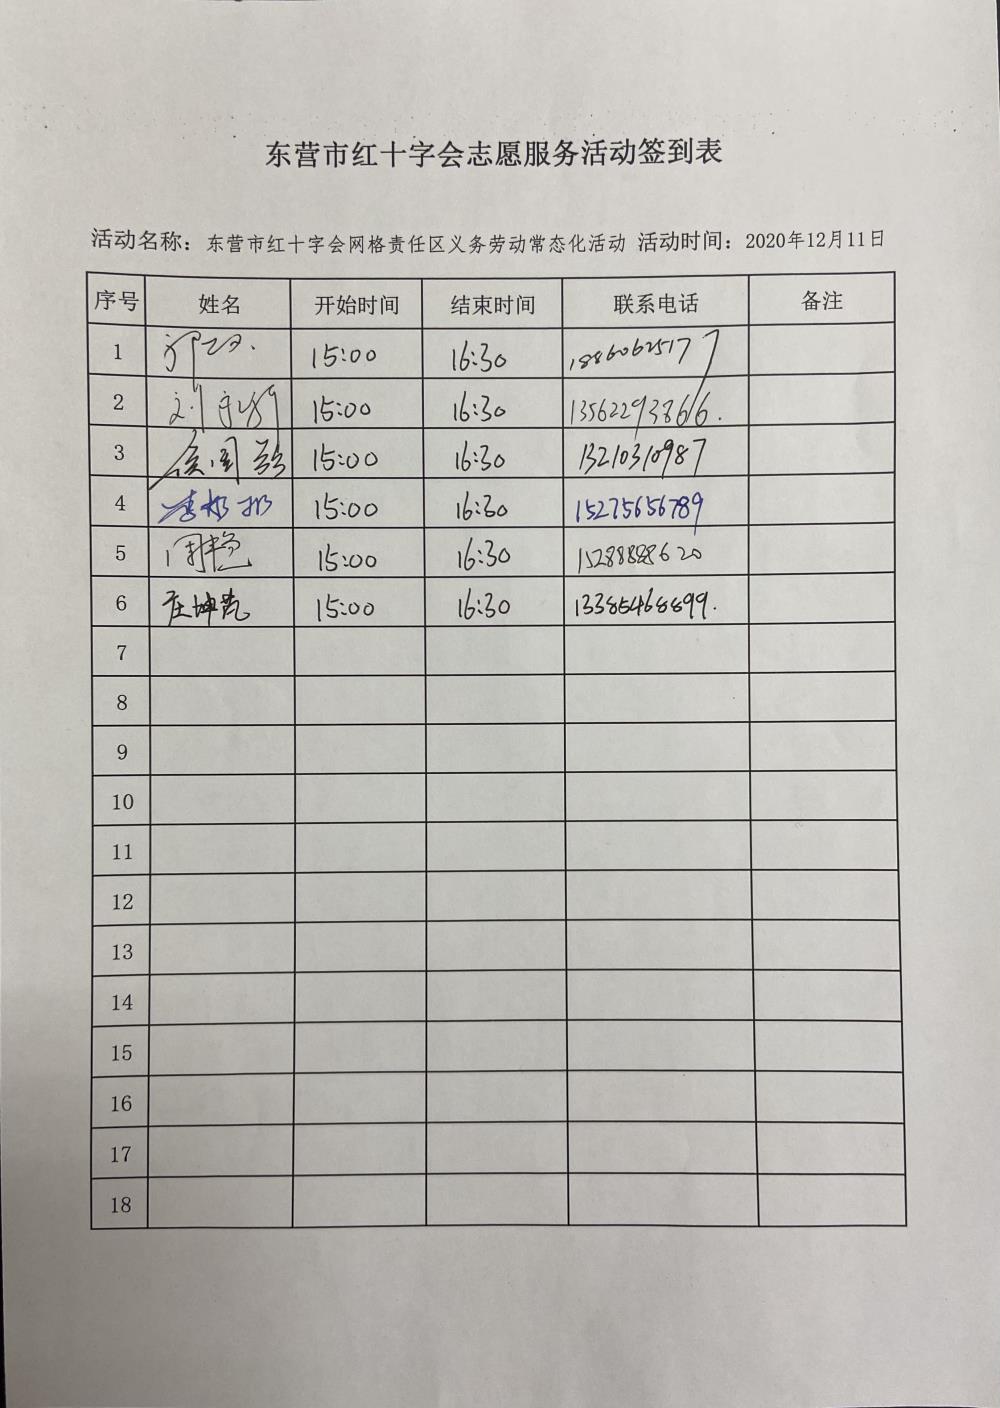 东营市红十字会志愿服务活动签到表
活动名称：东营市红十字会网格责任区义务劳动常态化活动 活动时间：2020年12月11日
序号 姓名 开始时间 结束时间 联系电话 备注
1 15:00 16:30 18860625177
2 15:00 16:30 13562293866.
3 15:00 16:30 13210310987
4 15:00 16:30 15275656789
5 周艳 15:00 16:30 15288888620
6 庄坤芫 15:00 16:30 13385468899.
7
8
9
10
11
12
13
14
15
16
17
18